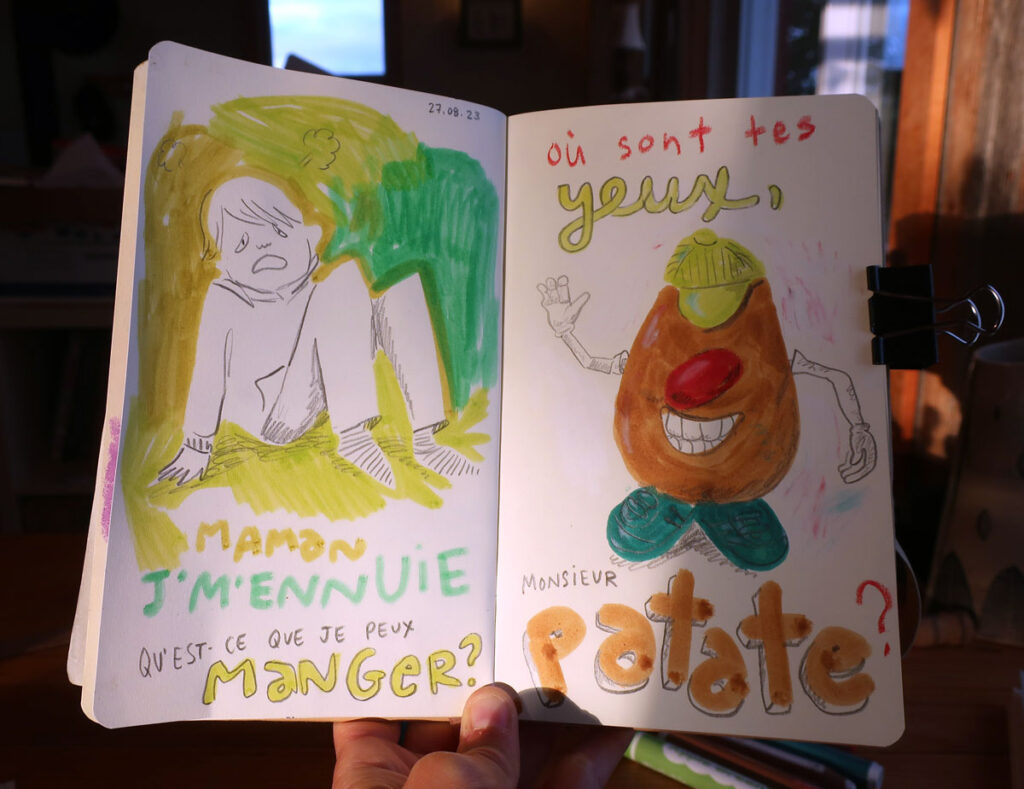 27.08.23
MAMAN
J'M'ENNUIE
QU'EST-CE QUE JE PEUX
MANGER?
où sont tes
yeux,
MONSIEUR
patate?